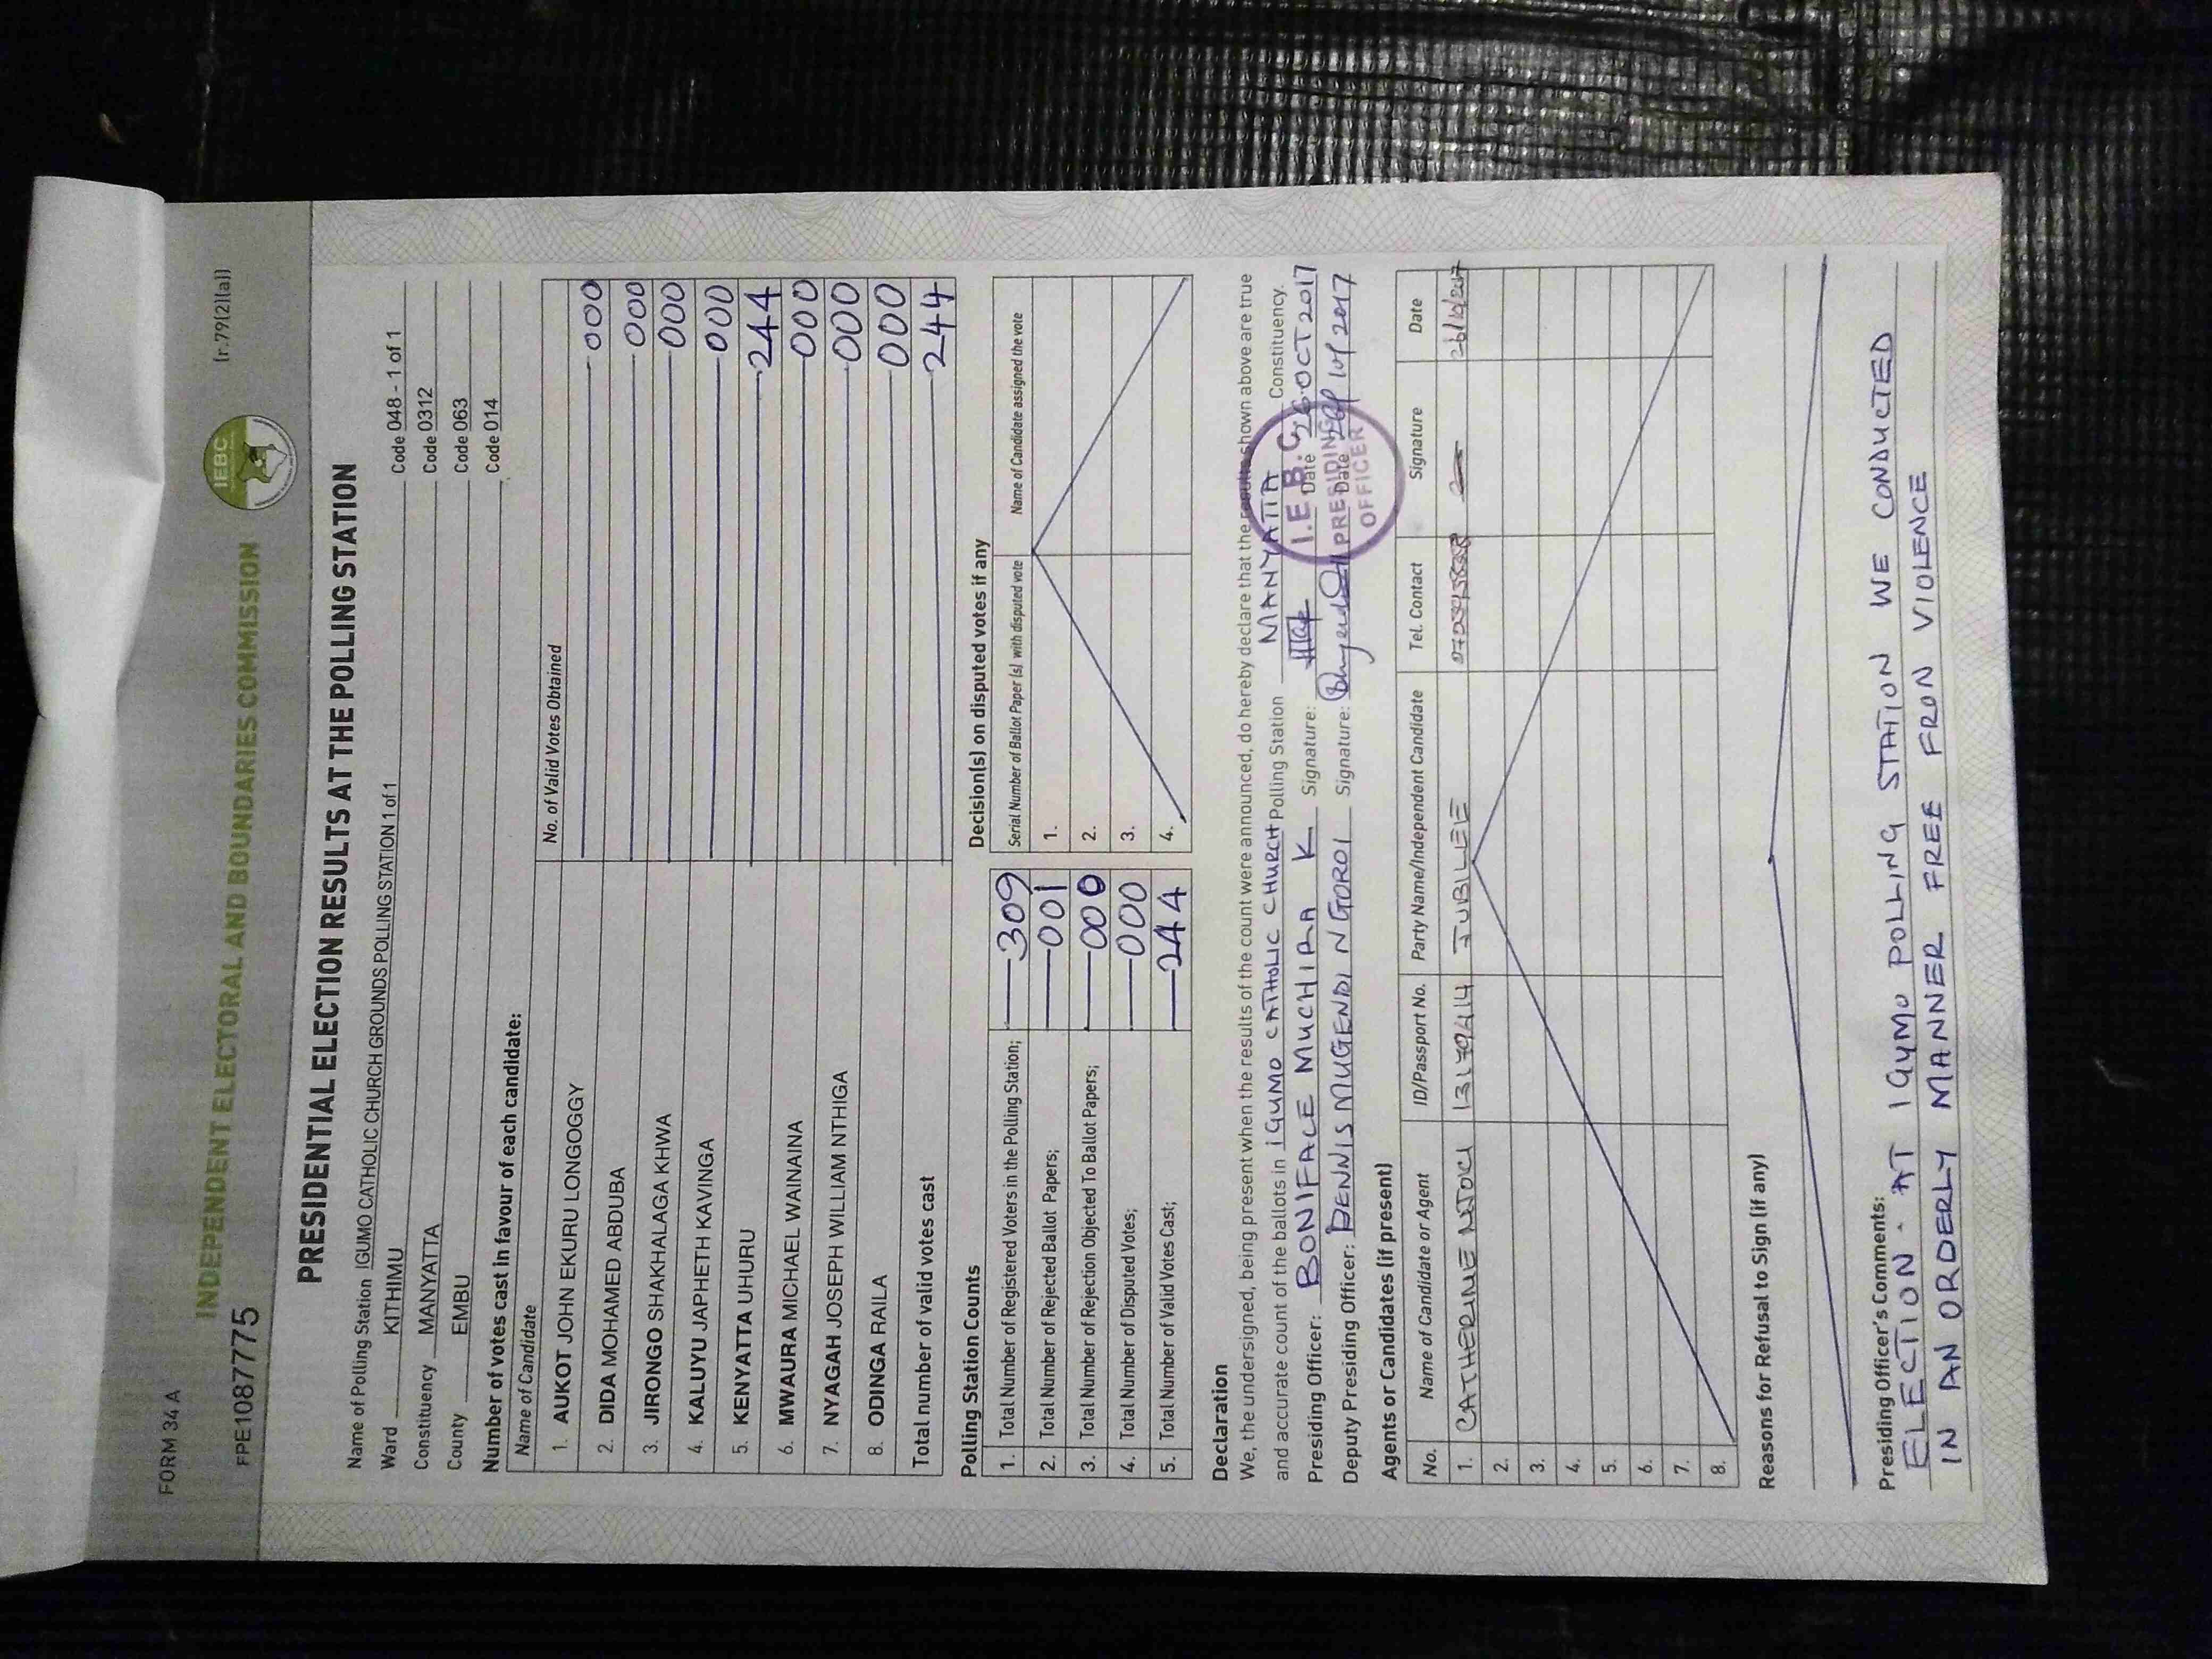 FORM 34 A
(r.79(2)(a))
INDEPENDENT ELECTORAL AND BOUNDARIES COMMISSION
IEBC
FPE1087775
PRESIDENTIAL ELECTION RESULTS AT THE POLLING STATION
Name of Polling Station IGUMO CATHOLIC CHURCH GROUNDS POLLING STATION 1 of 1 Code 048 - 1 of 1
Ward KITHIMU Code 0312
Constituency MANYATTA Code 063
County EMBU Code 014
Number of votes cast in favour of each candidate:
Name of Candidate No. of Valid Votes Obtained
1. AUKOT JOHN EKURU LONGOGGY 000
2. DIDA MOHAMED ABDUBA 000
3. JIRONGO SHAKHALAGA KHWA 000
4. KALUYU JAPHETH KAVINGA 000
5. KENYATTA UHURU 244
6. MWAURA MICHAEL WAINAINA 000
7. NYAGAH JOSEPH WILLIAM NTHIGA 000
8. ODINGA RAILA 000
Total number of valid votes cast 244
Polling Station Counts
1. Total Number of Registered Voters in the Polling Station; 309
2. Total Number of Rejected Ballot Papers; 001
3. Total Number of Rejection Objected To Ballot Papers; 000
4. Total Number of Disputed Votes; 000
5. Total Number of Valid Votes Cast; 244
Decision(s) on disputed votes if any
Serial Number of Ballot Paper (s) with disputed vote Name of Candidate assigned the vote
1.
2.
3.
4.
Declaration
We, the undersigned, being present when the results of the count were announced, do hereby declare that the results shown above are true
and accurate count of the ballots in IGUMO CATHOLIC CHURCH Polling Station MANYATTA Constituency.
Presiding Officer: BONIFACE MUCHIRA K Signature: Date 26 OCT 2017
Deputy Presiding Officer: DENNIS MUGENDI NGOROI Signature: Date 26/10/2017
I.E.B.C.
PRESIDING
OFFICER
Agents or Candidates (if present)
No. Name of Candidate or Agent ID/Passport No. Party Name/Independent Candidate Tel. Contact Signature Date
1. CATHERINE JUBILEE 26/10/2017
2.
3.
4.
5.
6.
7.
8.
Reasons for Refusal to Sign (if any)
Presiding Officer's Comments:
ELECTION AT IGUMO POLLING STATION WE CONDUCTED
IN AN ORDERLY MANNER FREE FRON VIOLENCE